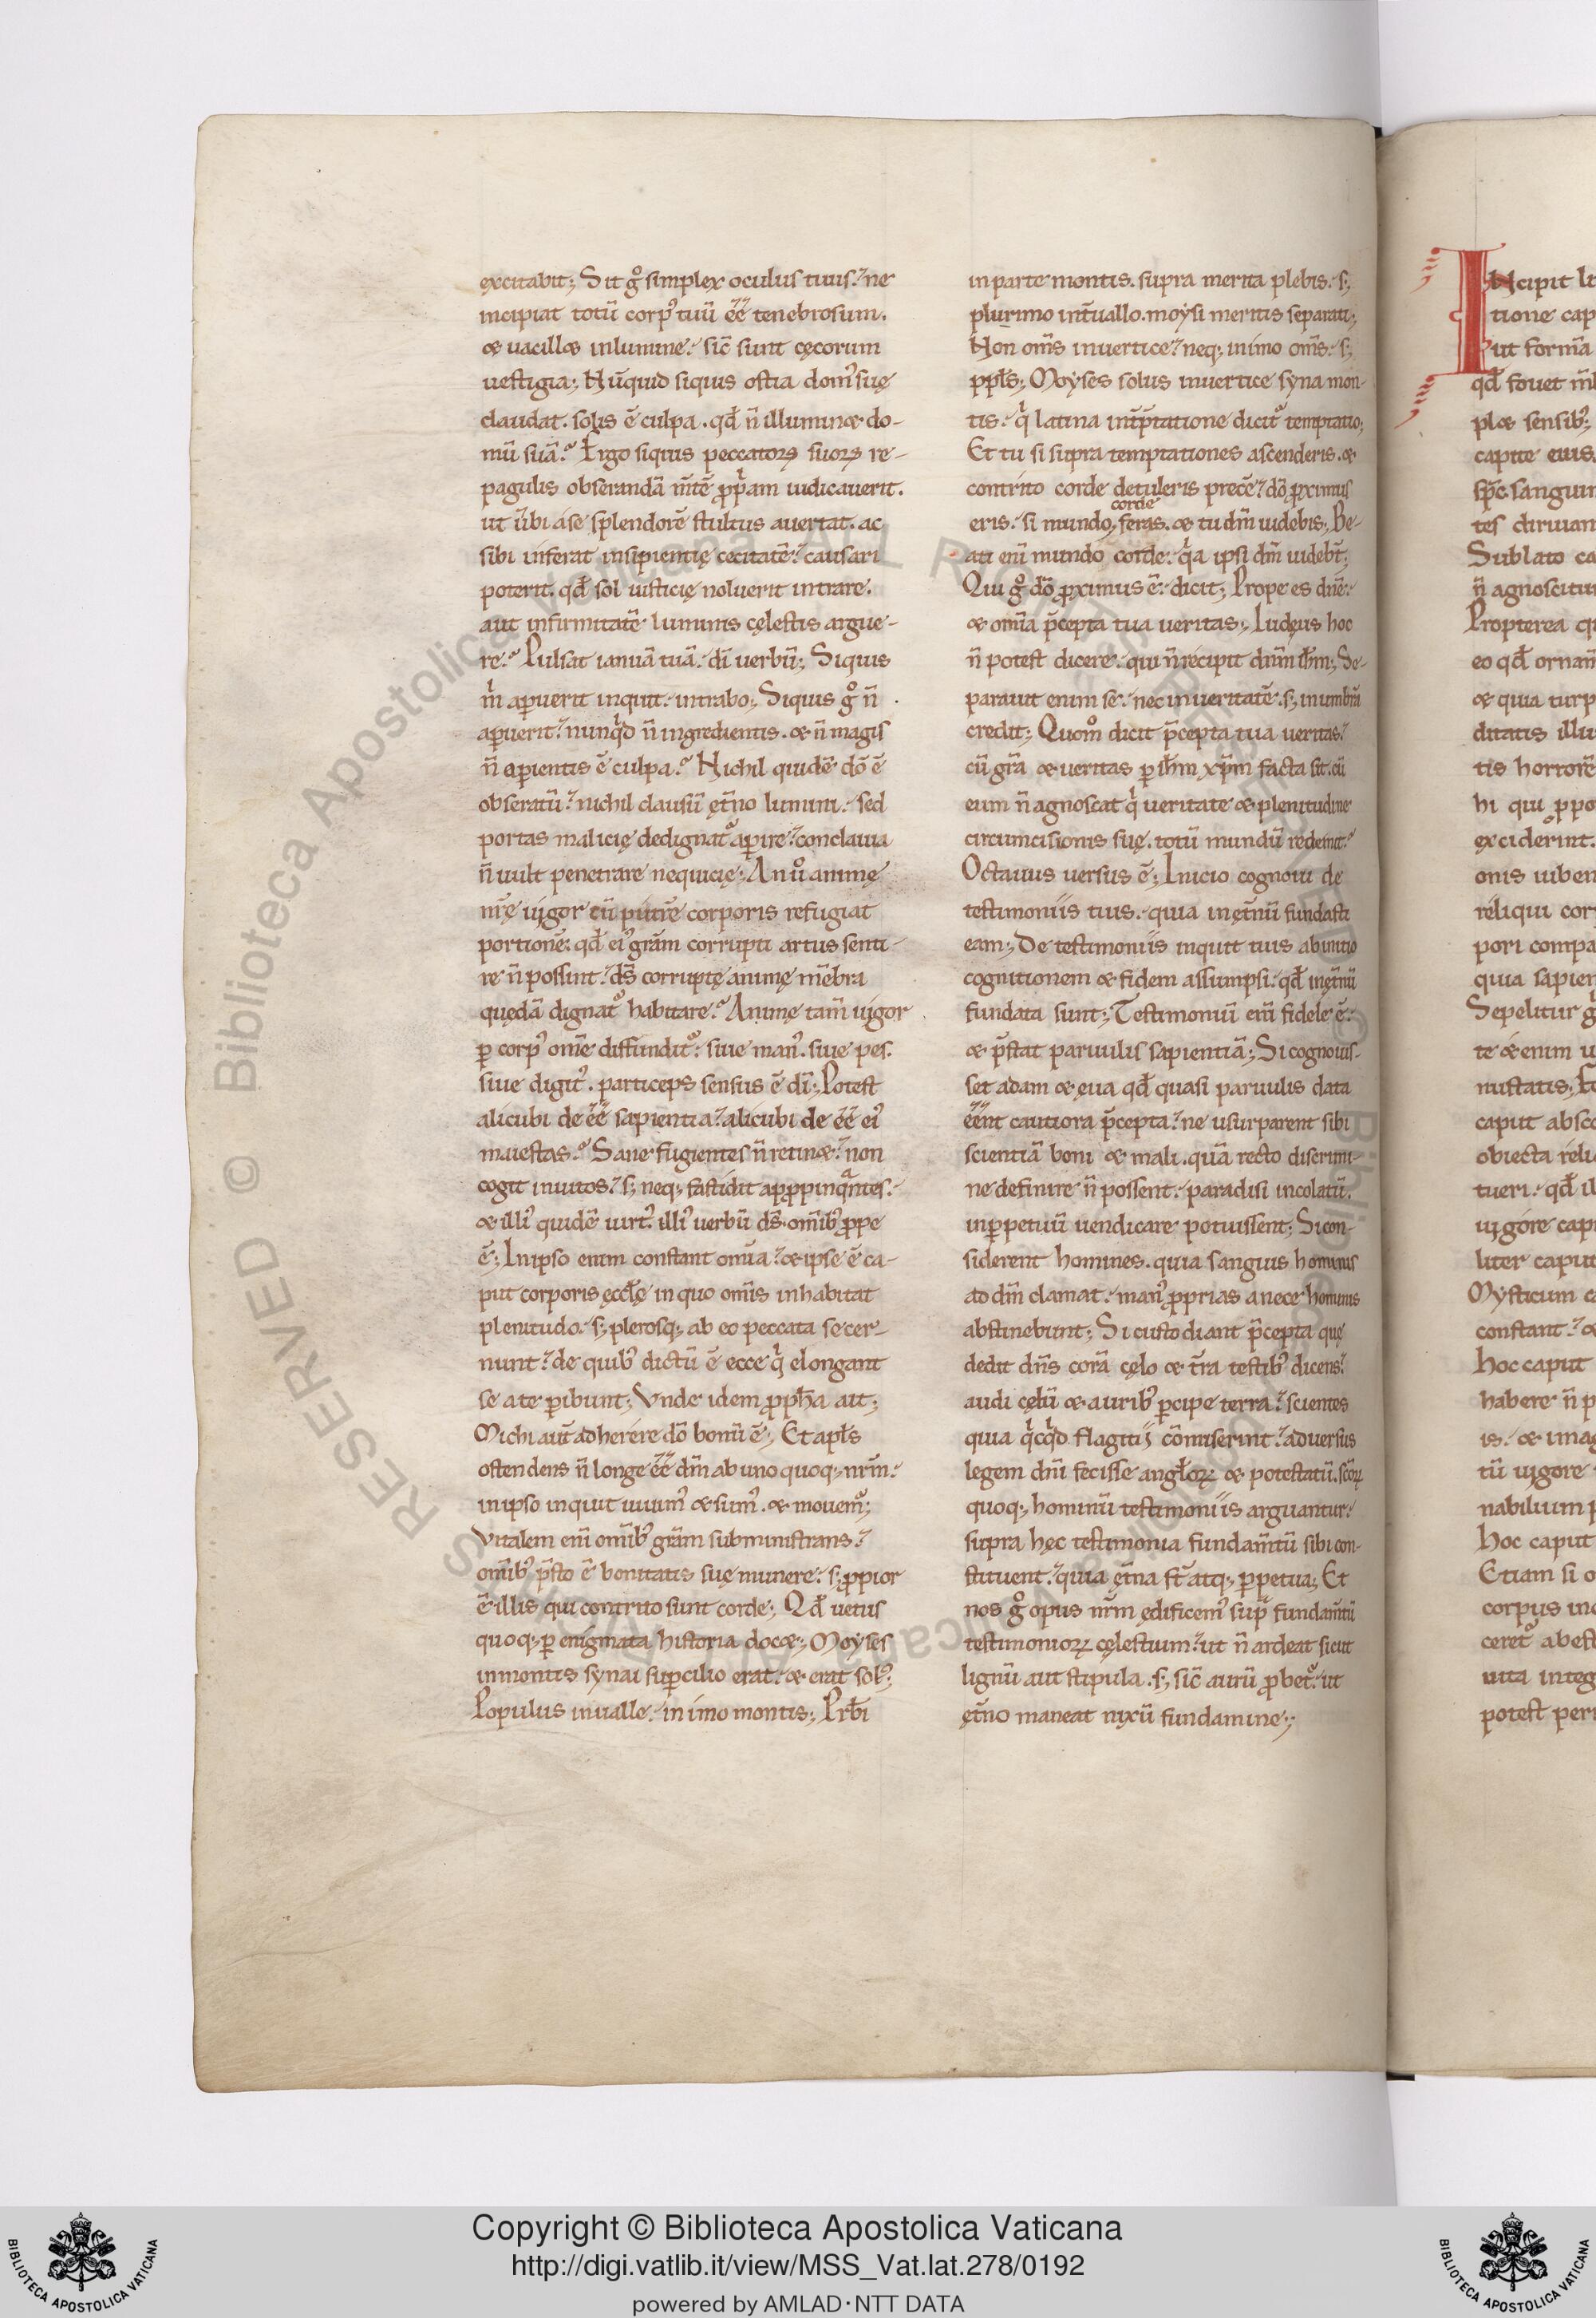 excitabit; Sit g̊ simplex oculus tuus. ne
incipiat totū corp' tuū ēē tenebrosum.
& uacill& inlumine. sic̄ sunt cęcorum
uestigia; Nūquid siquis ostia dom' suę
claudat. solis ē culpa. qđ n̄ illumin& do-
mū suā? Ergo siquis peccatoꝝ suoꝝ re-
pagulis obserandā m̄tē ꝓp̍am iudicauerit.
ut ū̄bi áse splendorē stultus auertat. ac
sibi inferat insipientię cecitatē. causari
poterit. qđ sol iusticię noluerit intrare.
aut infirmitatē luminis cęlestis argue-
re? Pulsat ianuā tuā. dī uerbū; Siquis
m̍ aꝑuerit inquit. intrabo; Siquis g̊ n̄
aꝑuerit. nunq̍d n̄ ingredientis. & n̄ magis
n̄ aꝑientis ē culpa? Nichil quidē dō ē
obseratū. nichil clausū ęt̄no lumini. sed
portas malicię dedignat᷑ aꝑire. conclauia
n̄ uult penetrare nequicię; An ů animę
nr̄ę uigor cū putrē corporis refugiat
portionē. qđ ei' grām corrupti artus senti-
re n̄ possint. ds̄ corruptę animę mēbra
quędā dignat᷑ habitare? Animę tam̄ uigor
ꝑ corp' om̄e diffundit᷑. siue man'. siue pes.
siue digit'. particeps sensus ē dī; Potest
alicubi de ēē sapientia. alicubi de ēē ei'
maiestas? Sane fugientes n̄ retin&. non
cogit inuitos. s; neq; fastidit apꝓpinq̄ntes.
& illi' quidē uirt'. illi' uerbū ds̄. om̄ib' ꝓpe
ē; Inipso enim constant omīa. & ipse ē ca-
put corporis ęccłę in quo om̄is inhabitat
plenitudo. s; plerosq; ab eo peccata secer-
nunt. de quib' dictū ē ecce q̍ elongant
se a te ꝑibunt; Vnde idem ꝓph̄a ait;
Michi aut̄ adherére dō bonū ē; Et apłs
ostendens n̄ longe ēē dm̄ ab uno quoq; nr̄m.
inipso inquit uiuim' & sum'. & mouem᷑;
Vitalem enī om̄ib' grām subministrans.
om̄ib' p̄sto ē bonitatis suę munere. s; ꝓpior
ē illis qui contrito sunt corde; Qđ uetus
quoq; ꝑ enigmata historia doc&; Moyses
inmontis synai suꝑcilio erat. & erat sol';
Populus inualle. in imo montis; Prb̄i
in parte montis. supra merita plebis. s;
plurimo int̄uallo. moysi meritis separati;
Non om̄s inuertice. neq; inimo om̄s. s;
ppłs; Moyses solus inuertice syna mon-
tis. q̍ latina int̄p̄tatione dicit᷑ temptatio;
Et tu si supra temptationes ascenderis. &
contrito corde detuleris precē. dō ꝓximus
corde
eris. si mundo, feras. & tu dm̄ uidebis; Be-
ati enī mundo corde. q̍a ipsi dm̄ uidebt̄;
Qui g̊ dō ꝓximus ē. dicit; Prope es dn̄e.
& omīa p̄cepta tua ueritas; Iudęus hoc
n̄ potest dicere. qui n̄ recipit dnm̄ ih̄m; Se-
parauit enim se. nec inueritatē. s; inumbrā
credit; Quom̊ dicit p̄cepta tua ueritas?
cū grā & ueritas ꝑ ih̄m xp̄m facta sit. cū
eum n̄ agnoscat q̍ ueritate & plenitudine
circumcisionis suę. totū mundū redemit?
Octauus uersus ē; Inicio cognoui de
testimoniis tuis. quia in ęt̄nū fundasti
eam; De testimoniis inquit tuis abinitio
cognitionem & fidem assumpsi. qđ inęt̄nū
fundata sunt; Testimoniū enī fidele ē.
& p̄stat paruulis sapientiā; Si cognouis-
set adam & ęua qđ quasi paruulis data
ēēnt cautiora p̄cepta. ne usurparent sibi
scientiā boni & mali. quā recto discrimi-
ne definire n̄ possent. paradisi incolatū.
inꝑpetuū uendicare potuissent; Si con-
siderent homines. quia sanguis hominis
ad dm̄ clamat. man' ꝓprias anece hominis
abstinebunt; Si custodiant p̄cepta quę
dedit dn̄s corā cęlo & t̄ra testib' dicens.
audi cęlū & aurib' ꝑcipe terra. scientes
quia q̍cq̍d flagitii cōmiserint. aduersus
legem dnī fecisse angłoꝝ & potestatū. sc̄oꝝ
quoq; hominū testimoniis arguantur.
supra hęc testimonia fundam̄tū sibi con-
stituent. quia ęt̄na st̄ atq; ꝑpetua; Et
nos g̊ opus nr̄m ędificem' sup̄ fundam̄tū
testimonioꝝ cęlestium. ut n̄ ardeat sicut
lignū aut stipula. s; sic̄ aurū ꝓbet᷑. ut
ęt̄no maneat nixū fundamine;
Incipit
tione cap
ut formā
qđ fouet
pl& sensib';
capite eius
sp̄c. sanguin
tes diriuan
Sublato ca
n̄ agnoscitur
Propterea
eo qđ ornam̄
& quia turp
ditatis illu
tis horrorē
hi qui ꝓpo
exciderint.
onis uiben
reliqui cor
pori compa
quia sapien
Sepelitur g
te & enim u
nustatis;
caput absc
obiecta reli
tueri. qđ il
uigore cap
liter caput
Mysticum c
constant. &
Hoc caput
habere n̄ p
is. & imag
tū uigore
nabilium p
Hoc caput
Etiam si o
corpus inc
ceret᷑ abest
uita integ
potest per
Copyright © Biblioteca Apostolica Vaticana
http://digi.vatlib.it/view/MSS_Vat.lat.278/0192
powered by AMLAD·NTT DATA
BIBLIOTECA APOSTOLICA VATICANA
BIBLIOTECA APOSTOLICA VATICANA